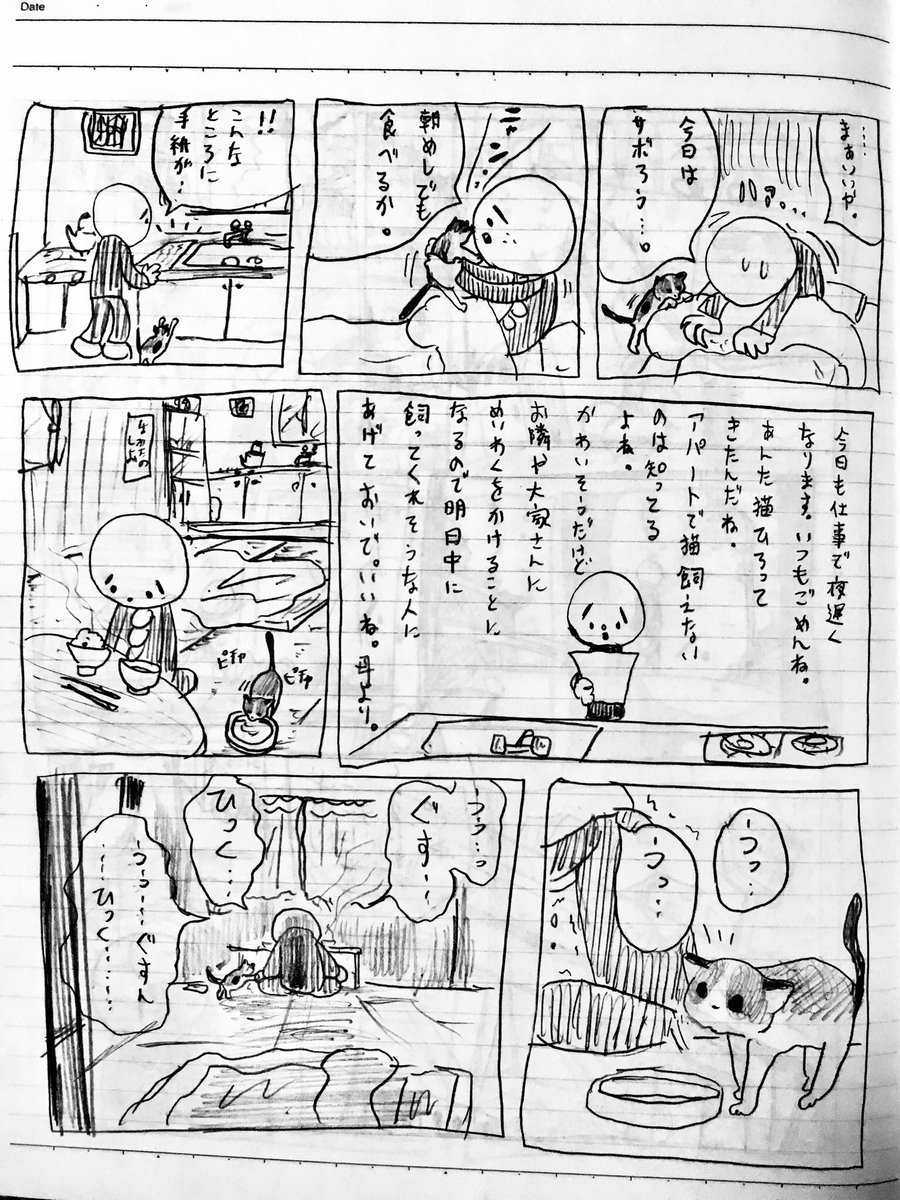 Date
……
まぁいいや。
今日は
サボろう…。
ニャン
ニャン
朝めしでも
食べるか。
!!
こんな
ところに
手紙が!
今日も仕事で夜遅く
なります。いつもごめんね。
あんた猫ひろって
きたんだね。
アパートで猫飼えない
のは知ってる
よね。
かわいそーだけど
お隣や大家さんに
めいわくをかけることに
なるので明日中に
飼ってくれそうな人に
あげておいで。いいね。母より。
ピチャ
ピチャ
うっ…
うっ…
うう…っ
ぐす…
ひっく…
うう…ぐすん
…ひっく……